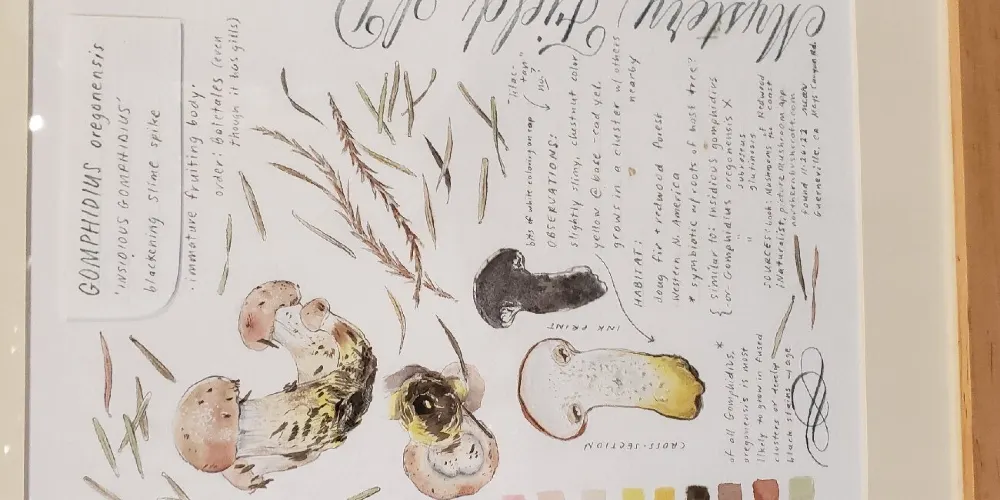 GOMPHIDIUS oregonensis
'INSIDIOUS GOMPHIDIUS'
blackening slime spike
·immature fruiting body·
order: Boletales (even
though it has gills)
Mystery Field
bits of white coloring on cap
"lilac-
tan"
no?
OBSERVATIONS:
slightly slimy, chestnut color
yellow @ base - red yel.
grows in a cluster w/others
nearby
HABITAT:
doug fir + redwood forest
Western N. America
* symbiotic w/ roots of host tree?
{ similar to: insidious gomphidius
-or- Gomphidius oregonensis X
" subroseus
" glutinosus
SOURCES: book: Mushrooms of Redwood coast
iNaturalist, picture mushroom app
northernbushcraft.com
found 11·26·22 near
Guerneville, CA Mays Canyon Rd.
INK PRINT
CROSS-SECTION
of all Gomphidius, *
oregonensis is most
likely to grow in fused
clusters or
black stains → age